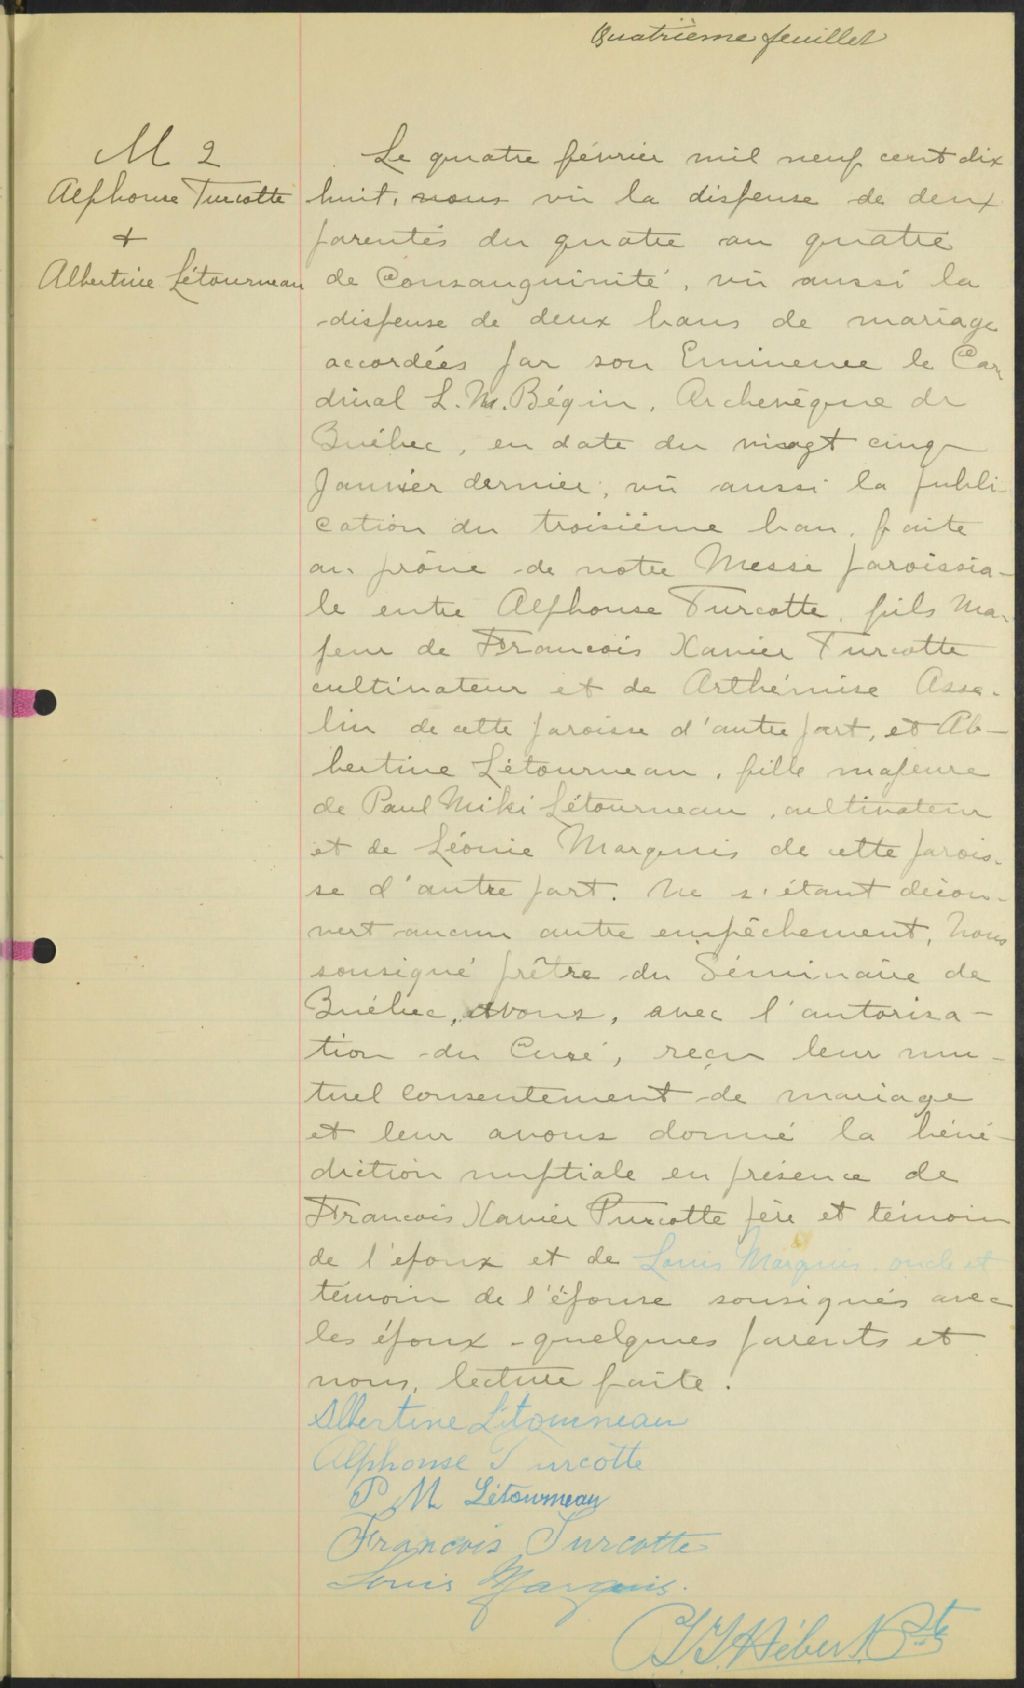 Quatrième feuillet
M 2
Alphonse Turcotte
+
Albertine Létourneau
Le quatre février mil neuf cent dix
huit, nous vu la dispense de deux
parentés du quatre au quatre
de Consanguinité, vu aussi la
dispense de deux bans de mariage
accordées par son Eminence le Car
dinal L. N. Bégin, Archevêque de
Québec, en date du vingt cinq
Janvier dernier, vu aussi la publi
cation du troisième ban, faite
au prône de notre Messe paroissia-
le entre Alphonse Turcotte, fils Ma-
jeur de Francois Xavier Turcotte
cultivateur et de Arthémise Asse-
lin de cette paroisse d'autre part, et Al-
bertine Létourneau, fille majeure
de Paul Miki Létourneau, cultivateur
et de Léonie Marquis de cette parois-
se d'autre part. Ne s'étant décou-
vert aucun autre empêchement, Nous
sousigné prêtre du Séminaire de
Québec, avons, avec l'autorisa-
tion du Curé, reçu leur mu-
tuel consentement de mariage
et leur avons donné la béné-
diction nuptiale en présence de
Francois Xavier Turcotte père et témoin
de l'époux et de Louis Marquis oncle et
témoin de l'épouse sousignés avec
les époux quelques parents et
nous, lecture faite.
Albertine Létourneau
Alphonse Turcotte
P M Létourneau
Francois Turcotte
Louis Marquis.
Hébert Ptre